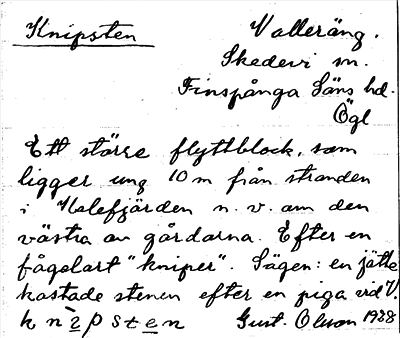 Knipsten
Valleräng.
Skedevi sn.
Finspånga Läns hd.
Ögl
Ett större flyttblock, som
ligger ung 10 m från stranden
i Kalefjärden n. v. om den
västra av gårdarna. Efter en
fågelart "kniper". Sägen: en jätte
kastade stenen efter en piga vid V.
knipsten Gust. Olsson 1928